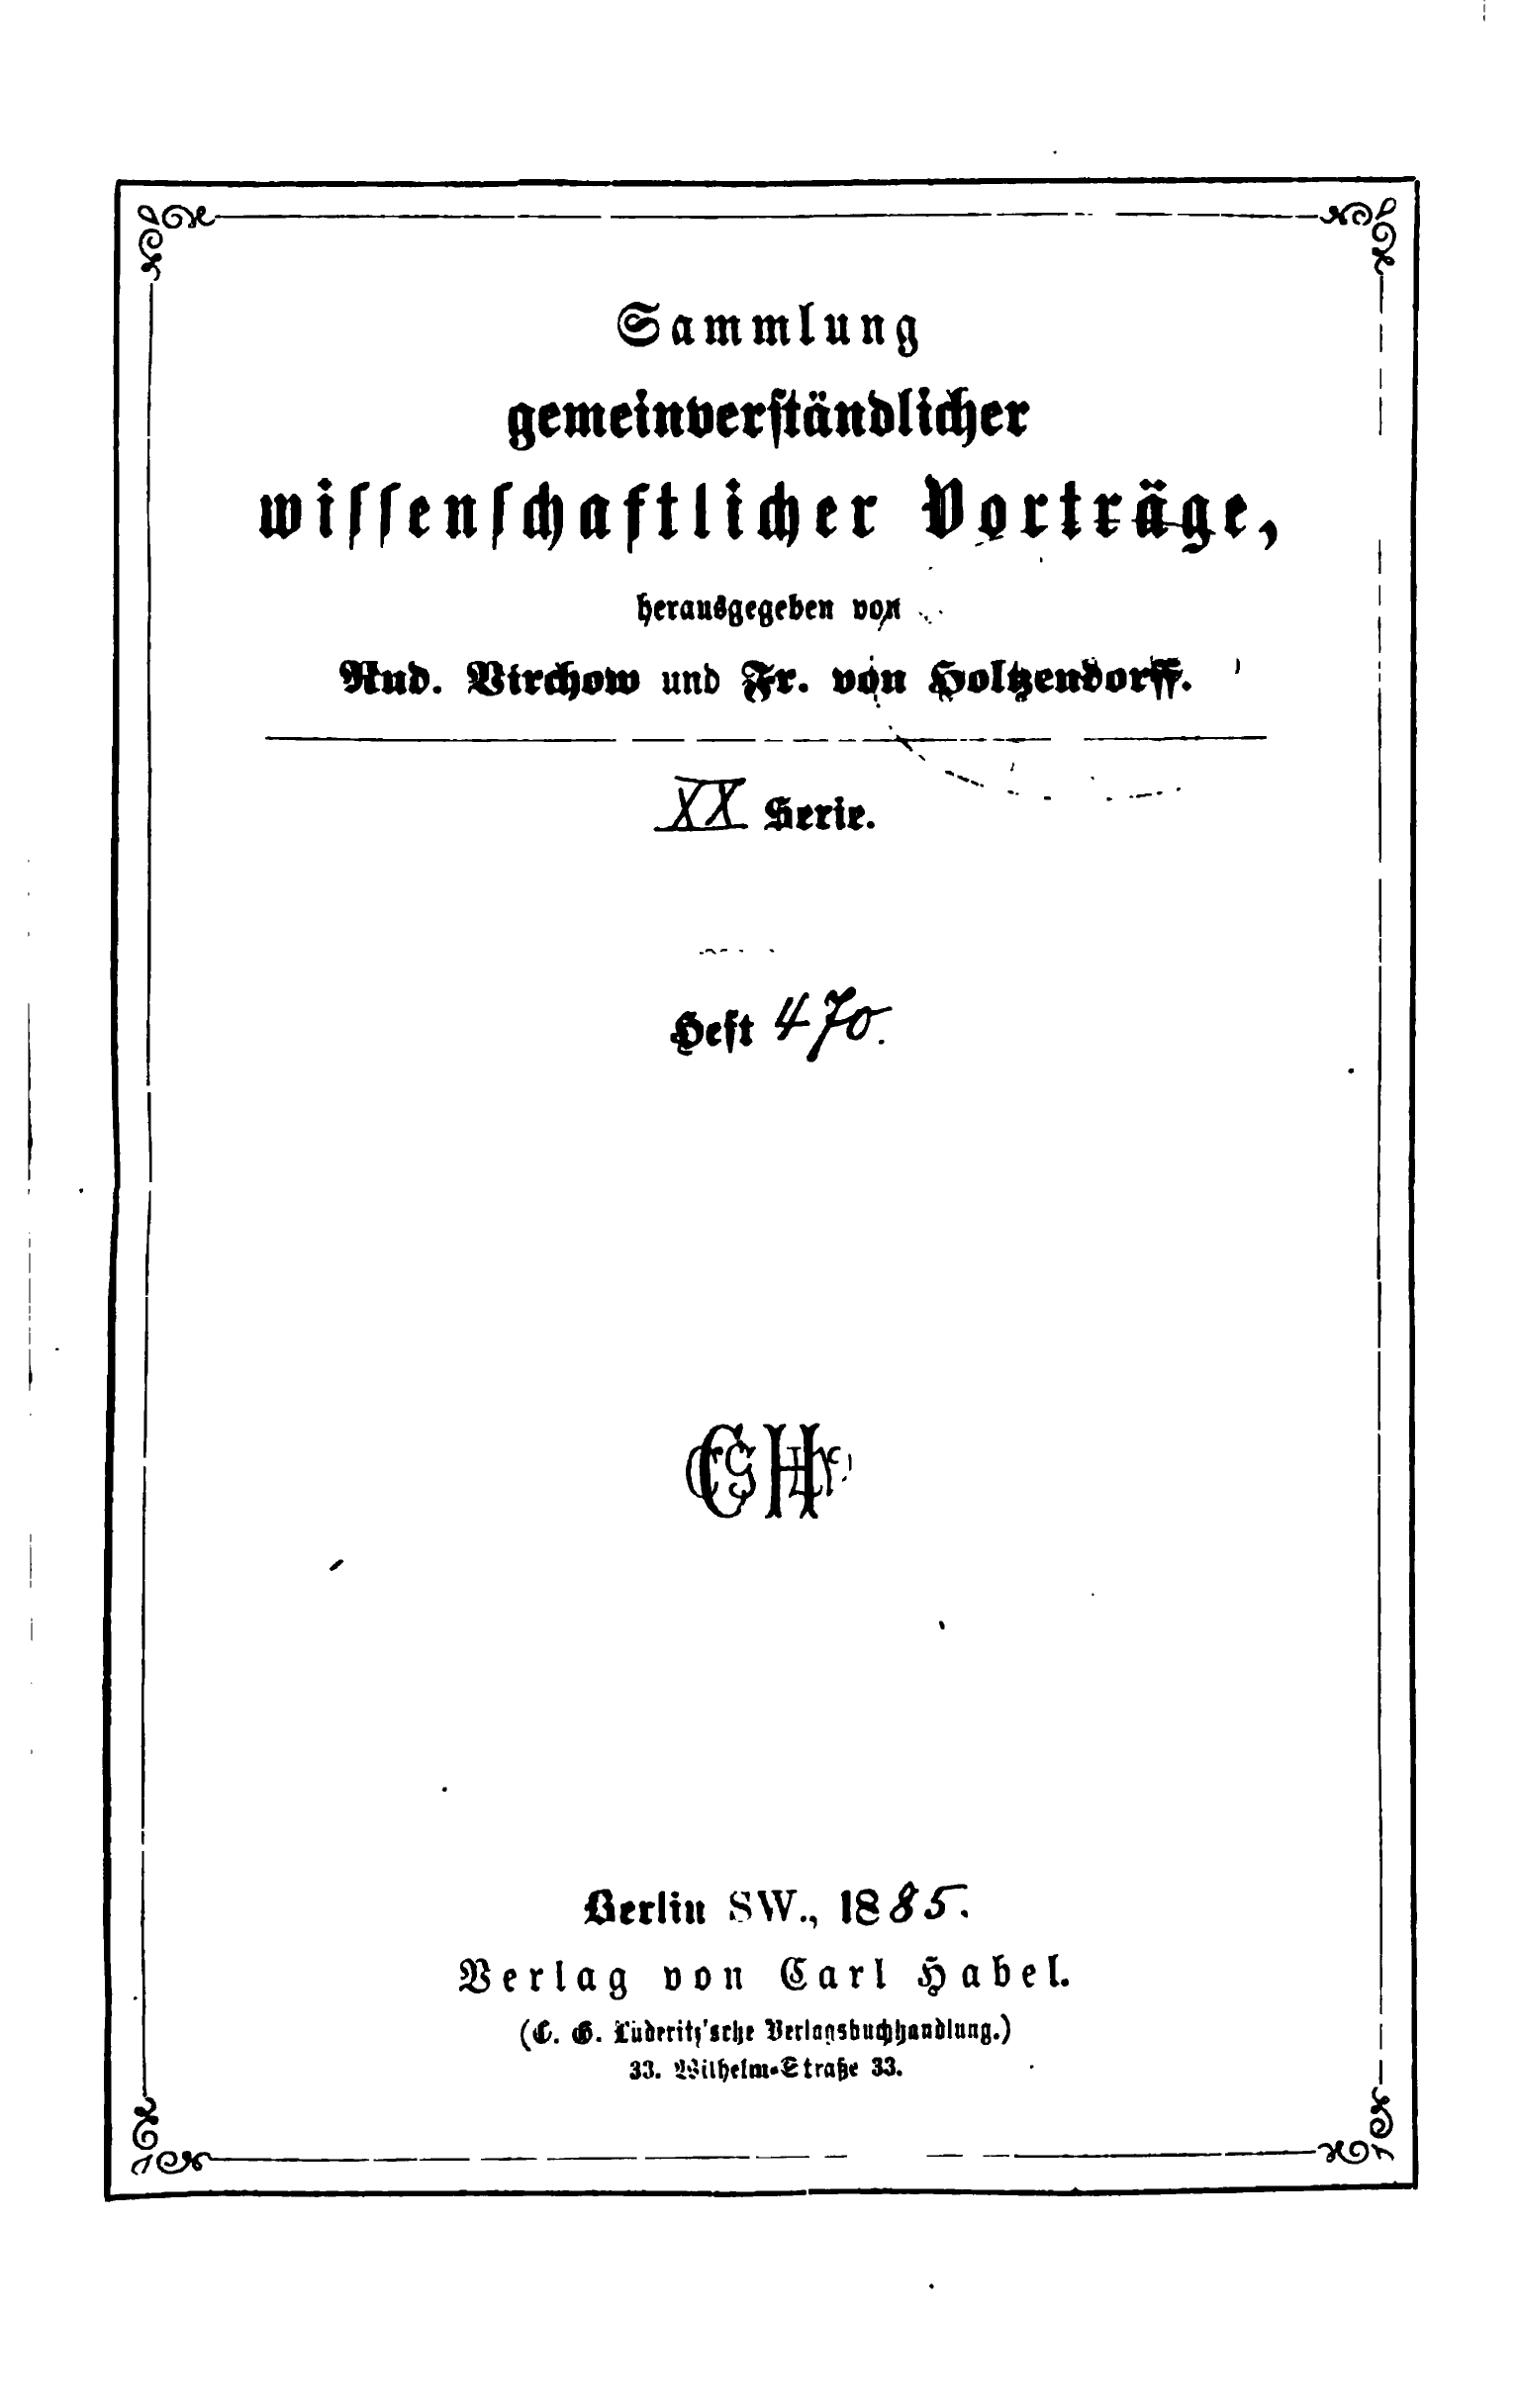 Sammlung
gemeinverständlicher
wissenschaftlicher Vorträge,
herausgegeben von
Rud. Virchow und Fr. von Holtzendorff.
XX Serie.
Heft 470.
Berlin SW., 1885.
Verlag von Carl Habel.
(C. G. Lüderitz'sche Verlagsbuchhandlung.)
33. Wilhelm-Straße 33.